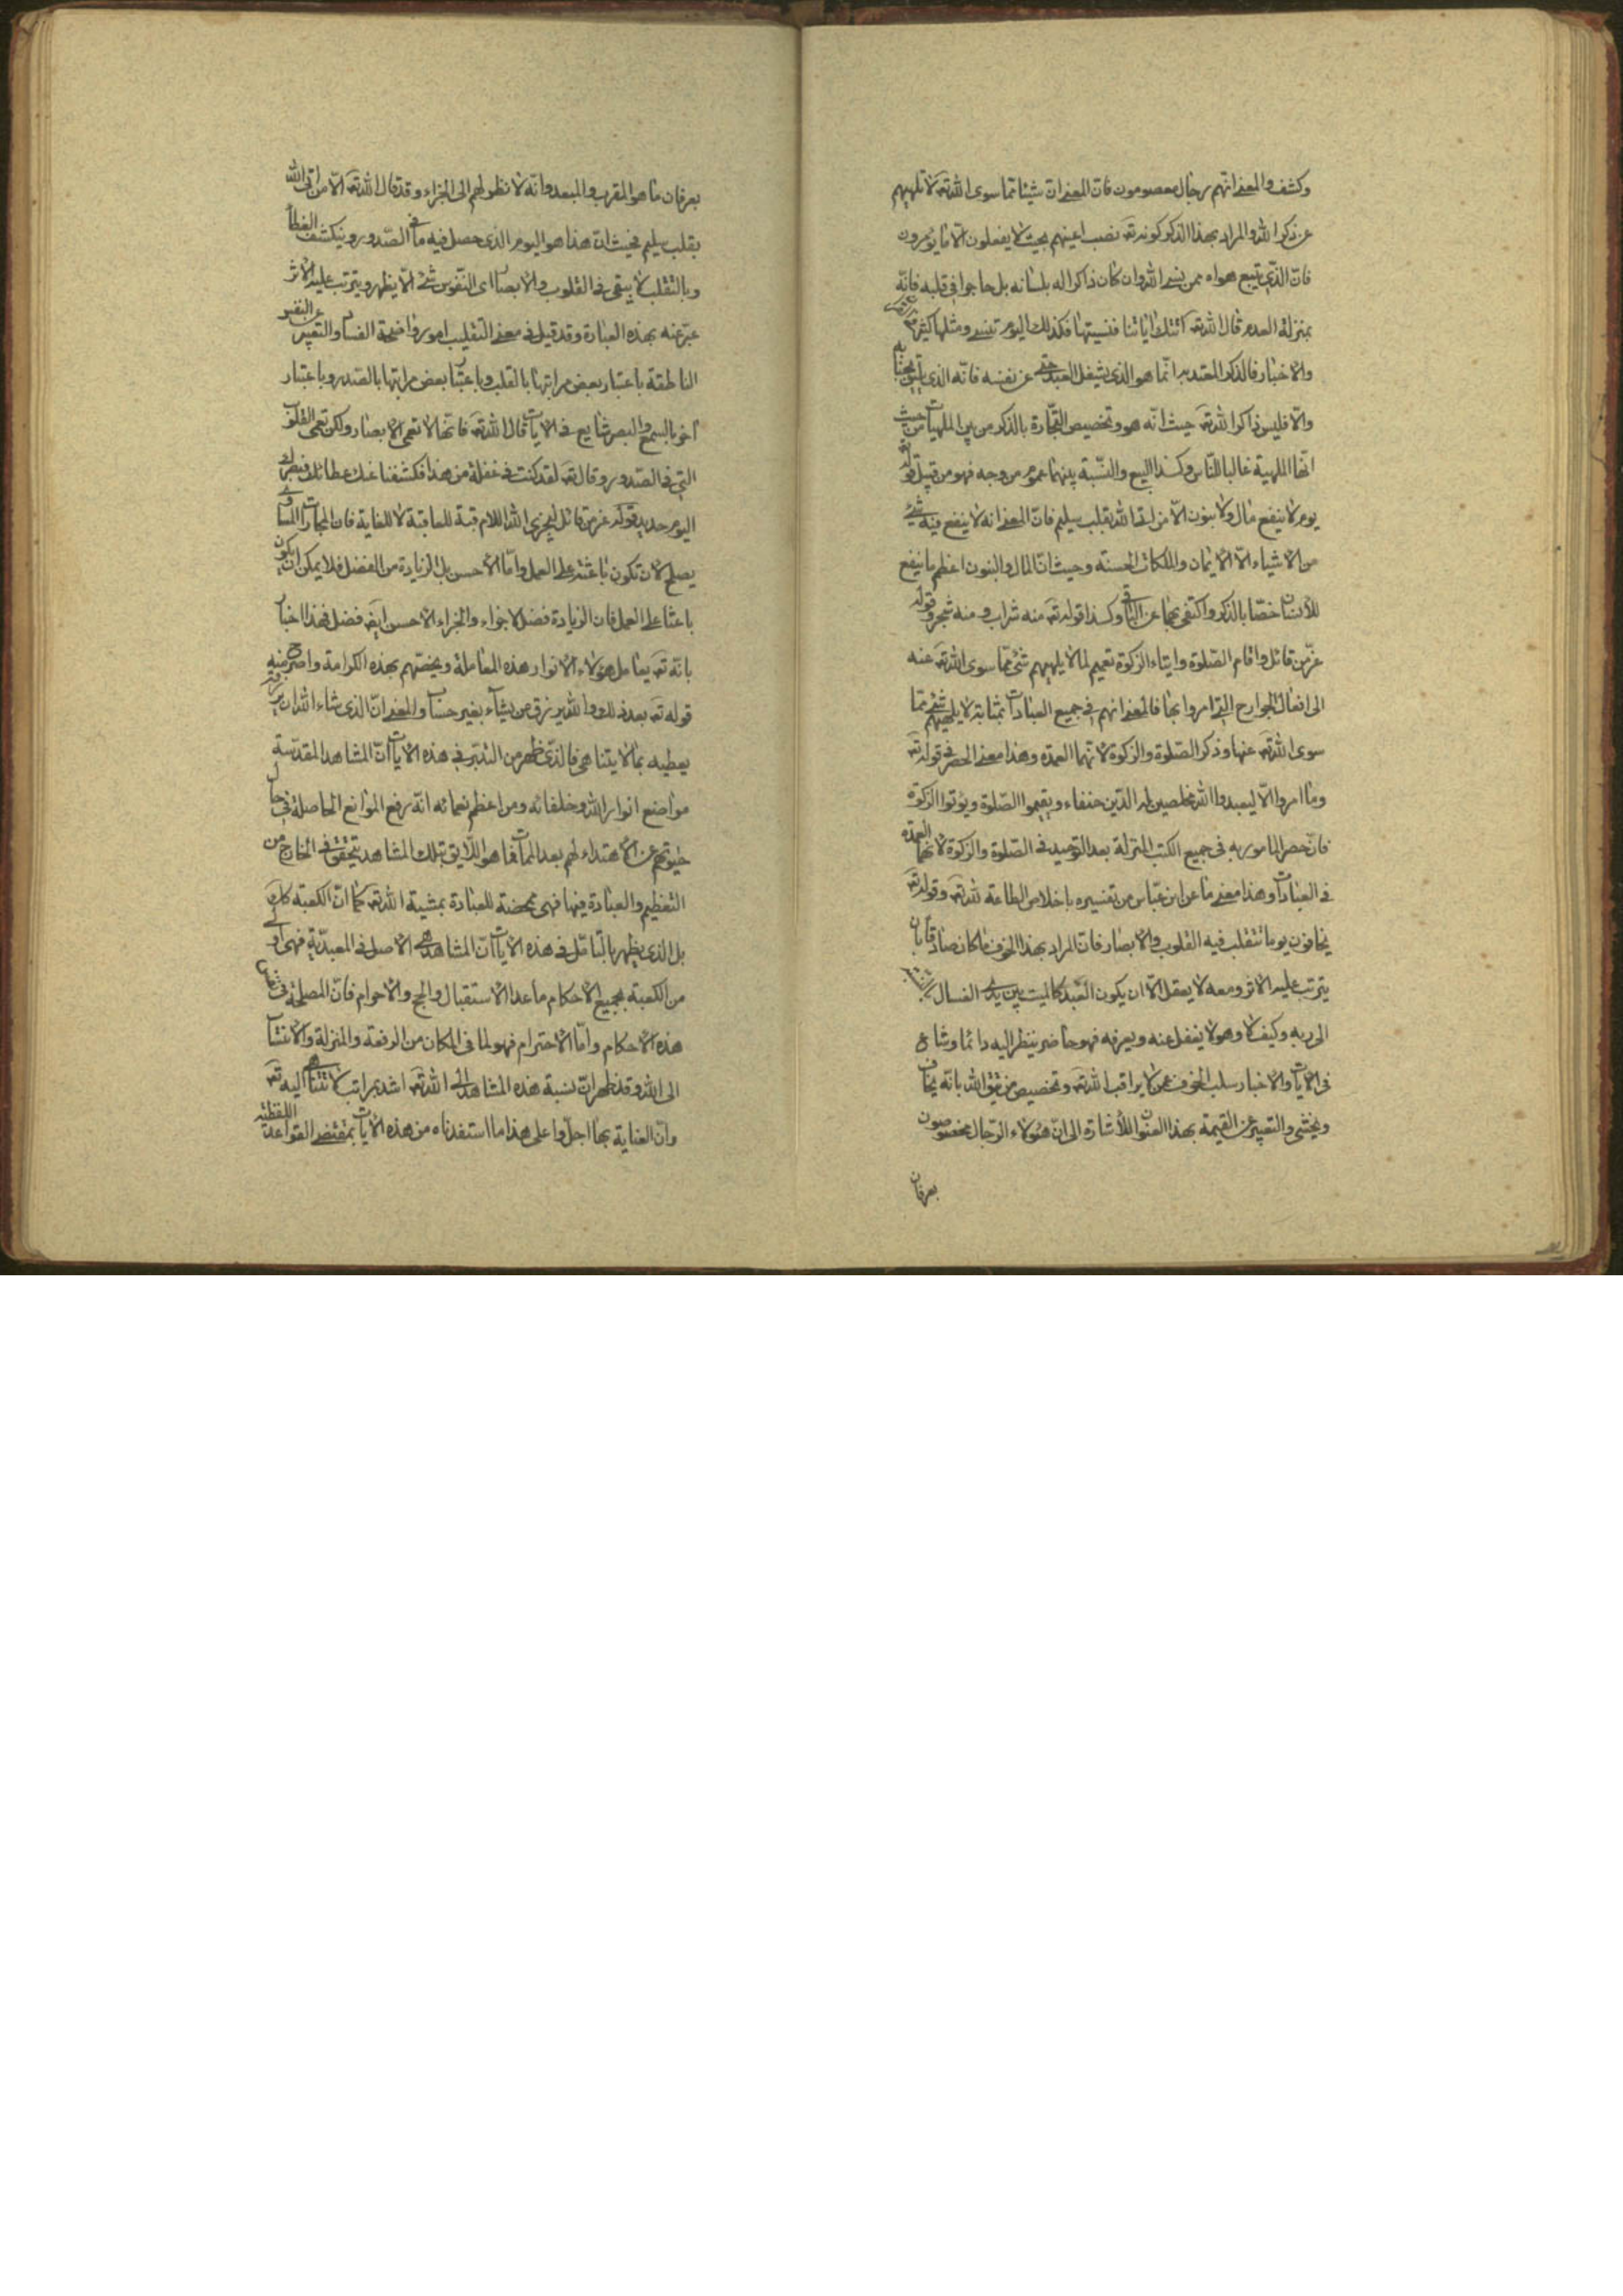 وكشف والمعنى انهم رجال معصومون فان المعنى ان شيئا مما سوى الله تعـ لا تلهيهم
عن ذكر الله والمراد بهذا الذكر كونه تعـ نصب اعينهم بحيث لا يفعلون الا ما يؤمرون
فان الذي يتبع هواه ممن ينسى الله وان كان ذاكرا له بلسانه بل حاجوا في قلبه فانه
بمنزلة العدم قال الله تعـ اتتك اياتنا فنسيتها فكذلك اليوم تنسى ومثلها كثير
والاخبار فالذكر المعتد به انما هو الذي يشغل العبد حتى عن نفسه فانه الذي
والا فليس ذاكرا لله تعـ حيث انه هو وتخصيص التجارة بالذكر من بين الملهيات من حيث
انها الملهية غالبا للناس وكذا البيع والنسبة بينهما عموم من وجه فهو من قبيل قوله تعـ
يوم لا ينفع مال ولا بنون الا من اتى الله بقلب سليم فان المعنى انه لا ينفع فيه شيء
من الاشياء الا الايمان والملكات الحسنة وحيث ان المال والبنون اعظم ما ينفع
للانسان خصا بالذكر واكتفى بهما عن الباقي وكذا قوله تعـ منه شراب ومنه شجر وقوله
عز من قائل واقام الصلوة وايتاء الزكوة تعميم لما لا يلهيهم شئ مما سوى الله تعـ عنه
الى افعال الجوارح التي امروا بها فالمعنى انهم في جميع العبادات بمثابة لا يلهيهم شئ مما
سوى الله تعـ عنها وذكر الصلوة والزكوة لانهما العمدة وهذا معنى الحصر في قوله تعـ
وما امروا الا ليعبدوا الله مخلصين له الدين حنفاء ويقيموا الصلوة ويؤتوا الزكوة
فان حصر المامور به في جميع الكتب المنزلة بعد التوحيد في الصلوة والزكوة لانهما العمدة
في العبادات وهذا معنى ما عن ابن عباس من تفسيره باخلاص الطاعة لله تعـ وقوله تعـ
يخافون يوما تتقلب فيه القلوب والابصار فان المراد بهذا الخوف ما كان صادقا بان
يترتب عليه الاثر ومعه لا يعقل الا ان يكون العبد كالميت بين يدي الغسال
الى ربه وكيف لا وهو لا يغفل عنه ويعرفه فهو حاضر ينظر اليه دائما وشاع
في الايات والاخبار سلب الخوف عمن لا يراقب الله تعـ وتخصيص من يتق الله بانه يخاف
ويخشى والتعبير عن القيمة بهذا العنوان للاشارة الى ان هؤلاء الرجال مخصوصون
بعرفان
بعرفان ما هو المقرب والمبعد وانه لا نظر لهم الى الجزاء وقد قال الله تعـ الا من اتى الله
بقلب سليم فحيث ان هذا هو اليوم الذي حصل فيه ما في الصدور وينكشف الغطاء
وبالتقلب لا يبقى في القلوب والابصار اى النفوس شئ الا يظهر ويترتب عليه الاثر
عبر عنه بهذه العبارة وقد قيل في معنى التقليب امور واضحة الفساد والتعبير عن النفس
الناطقة باعتبار بعض مراتبها بالقلب وباعتبار بعض مراتبها بالصدر وباعتبار
اخر بالسمع والبصر شايع في الايات قال الله تعـ فانها لا تعمى الابصار ولكن تعمى القلوب
التي في الصدور وقال تعـ لقد كنت في غفلة من هذا فكشفنا عنك غطائك فبصرك
اليوم حديد قوله عز من قائل ليجزي الله اللام فيه للعاقبة لا للغاية فان المجازات المساوي
يصلح لان تكون باعثة على العمل واما الاحسن بل الزيادة من الفضل فلا يمكن ان يكون
باعثا على العمل فان الزيادة فضل لا جزاء والجزاء الاحسن ايضا فضل فهذا اخبار
بانه تعـ يعامل هؤلاء الانوار هذه المعاملة ويخصهم بهذه الكرامة واصرح منه
قوله تعـ بعد ذلك والله يرزق من يشاء بغير حساب والمعنى ان الذي شاء الله ان يرزقه
يعطيه بما لا يتناهى فالذي ظهر من التدبر في هذه الايات ان المشاهد المقدسة
مواضع انوار الله وخلفائه ومن اعظم نعمائه انه رفع الموانع الحاصلة في حال
حيوتهم عن الاهتداء لهم بعد الممات فما هو اللايق بتلك المشاهد يتحقق في الخارج من
التعظيم والعبادة فيها فهي ممحضة للعبادة بمشية الله تعـ كما ان الكعبة كذلك
بل الذي يظهر بالتامل في هذه الايات ان المشاهد هي الاصل في المعبدية فهي اولى
من الكعبة بجميع الاحكام ما عدا الاستقبال والحج والاحرام فان المصلحة في
هذه الاحكام واما الاحترام فهو لما في المكان من الرفعة والمنزلة والانتساب
الى الله وقد ظهر ان نسبة هذه المشاهد الى الله تعـ اشد بمراتب لا تتناهى اليه تعـ
وان العناية بها اجل واعلى هذا ما استفدناه من هذه الايات بمقتضى القواعد اللفظية